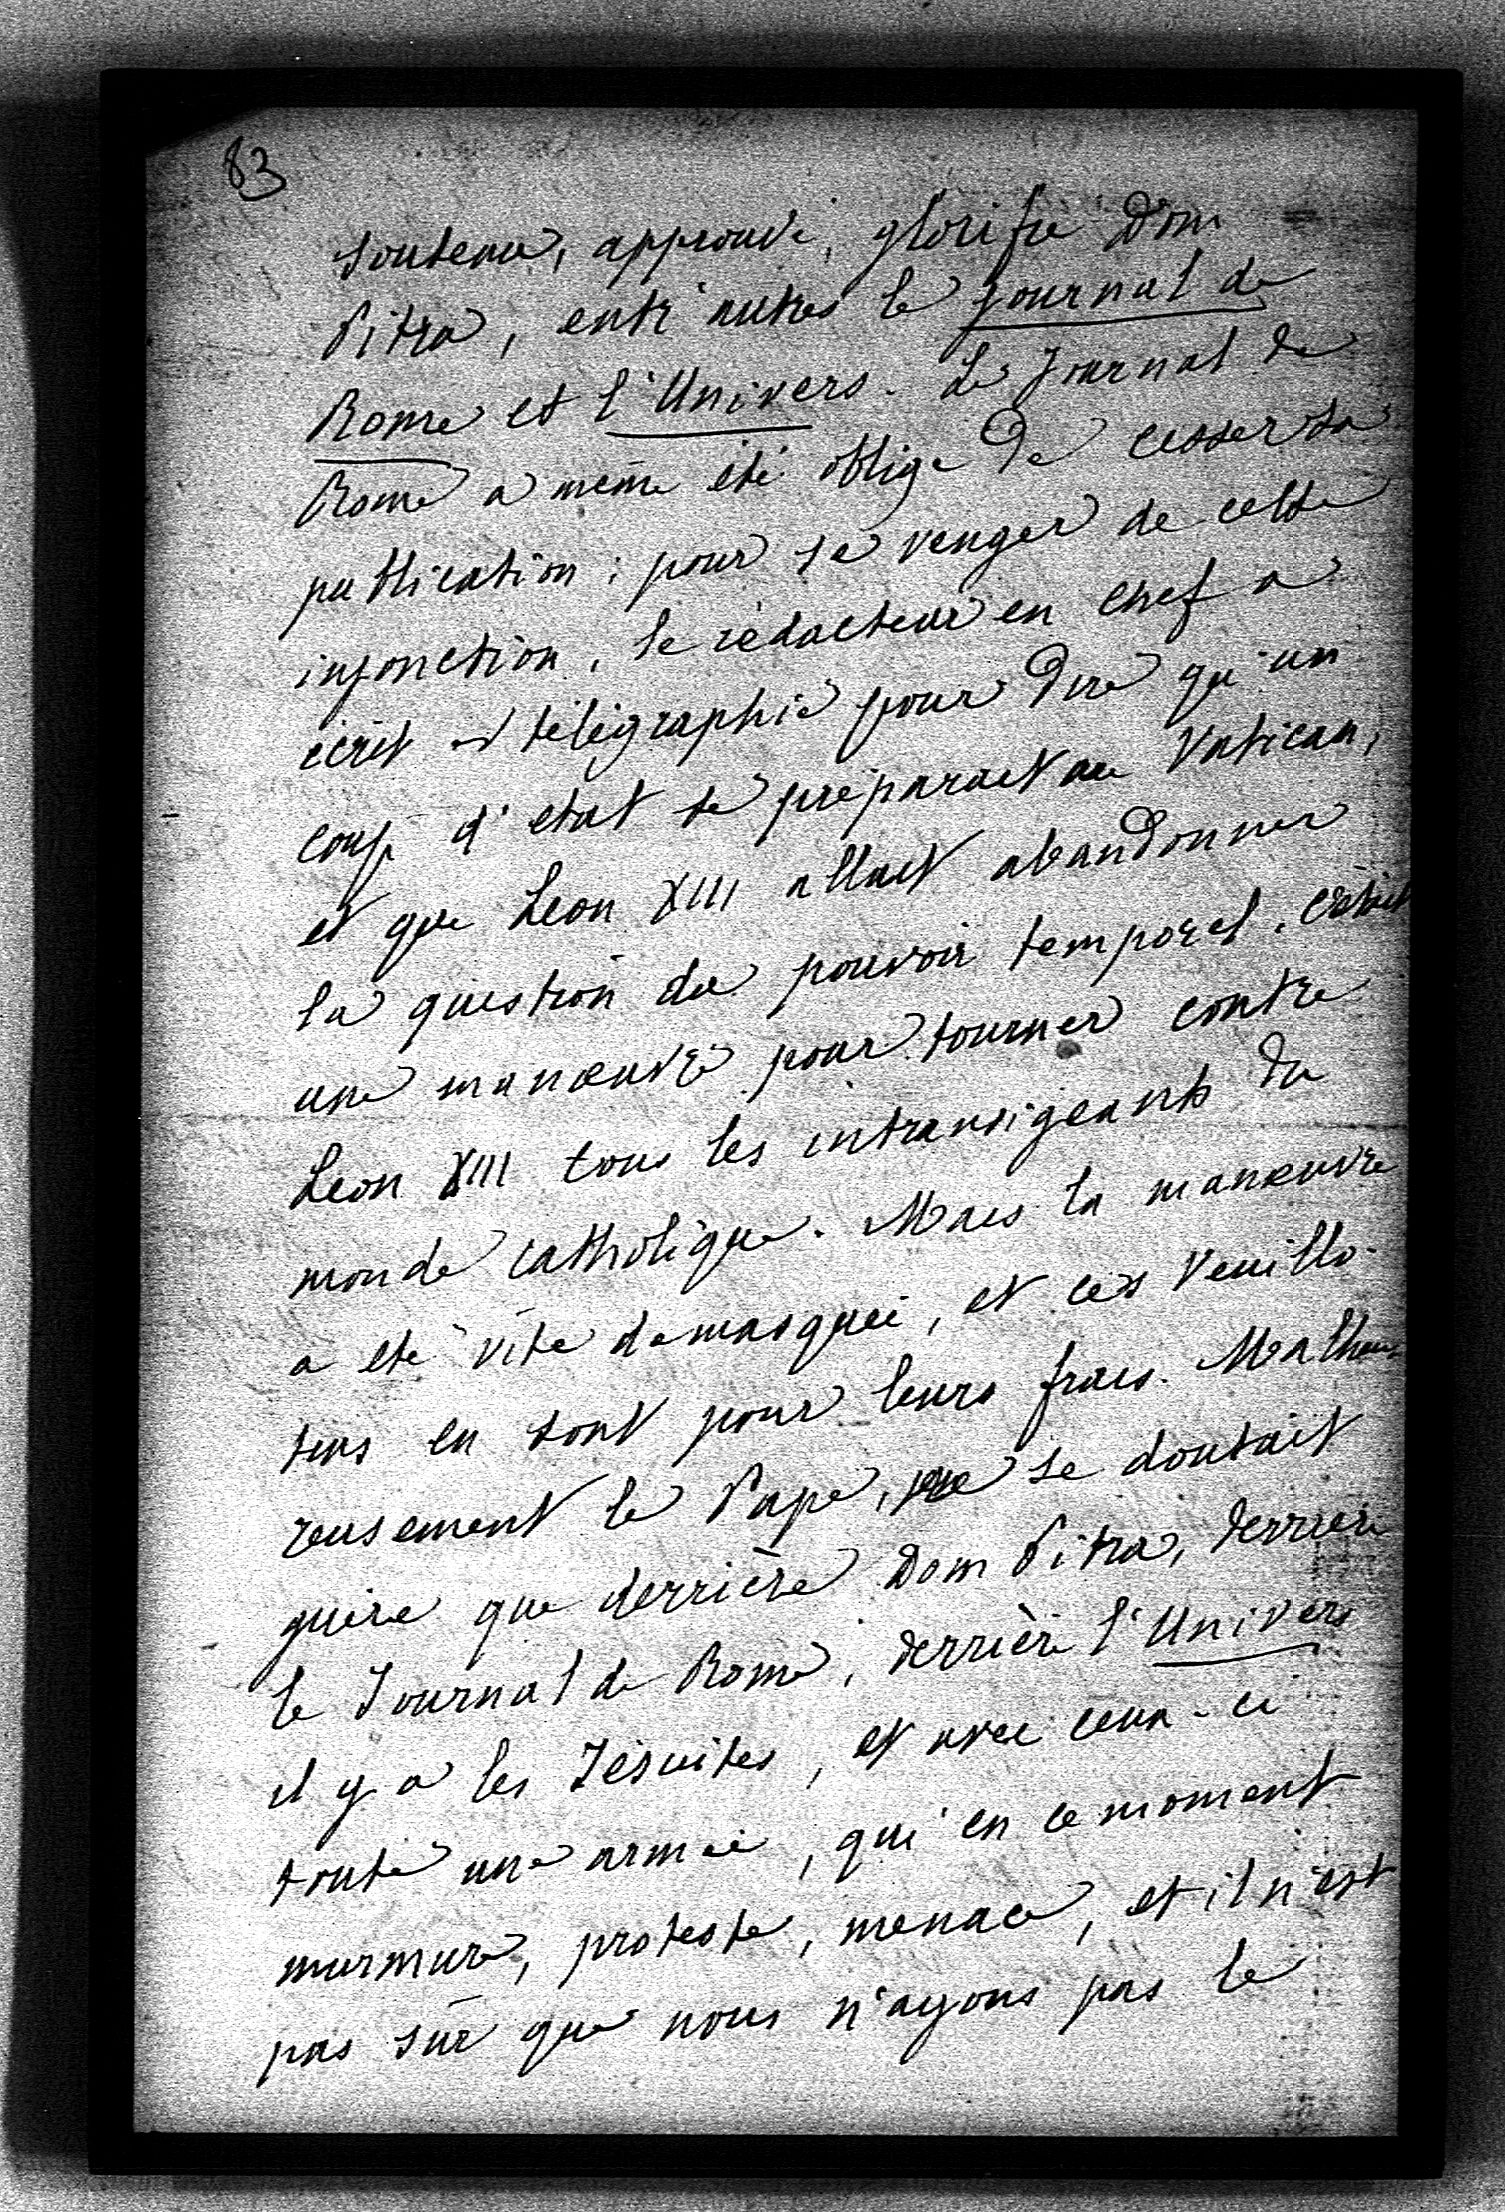 83
soutenu, approuvé, glorifié Dom
Pitra, entr'autres le Journal de
Rome et l'Univers. Le Journal de
Rome a même été obligé de cesser sa
publication ; pour se venger de cette
injonction, le rédacteur en chef a
écrit et télégraphié pour dire qu'un
coup d'état se préparait au Vatican,
et que Léon XIII allait abandonner
la question du pouvoir temporel. C'était
une manœuvre pour tourner contre
Léon XIII tous les intransigeants du
monde catholique. Mais la manœuvre
a été vite démasquée, et ces Veuillo-
tins en sont pour leurs frais. Malheu-
reusement le Pape, ne se doutait
guère que derrière Dom Pitra, derrière
le Journal de Rome, derrière l'Univers
il y a les Jésuites, et avec ceux-ci
toute une armée, qui en ce moment
murmure, proteste, menace, et il n'est
pas sûr que nous n'ayons pas le